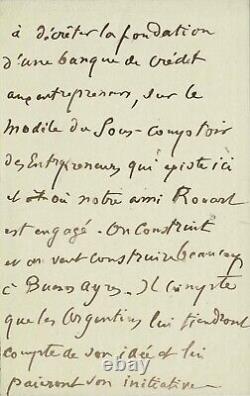 à décréter la fondation
d'une banque de crédit
aux entrepreneurs, sur le
modèle du Sous-Comptoir
des Entrepreneurs qui existe ici
et où notre ami Rouart
est engagé. On construit
et on veut construire beaucoup
à Buenos Ayres. Il compte
que les Argentins lui tiendront
compte de son idée et lui
paieront son initiative
ebay